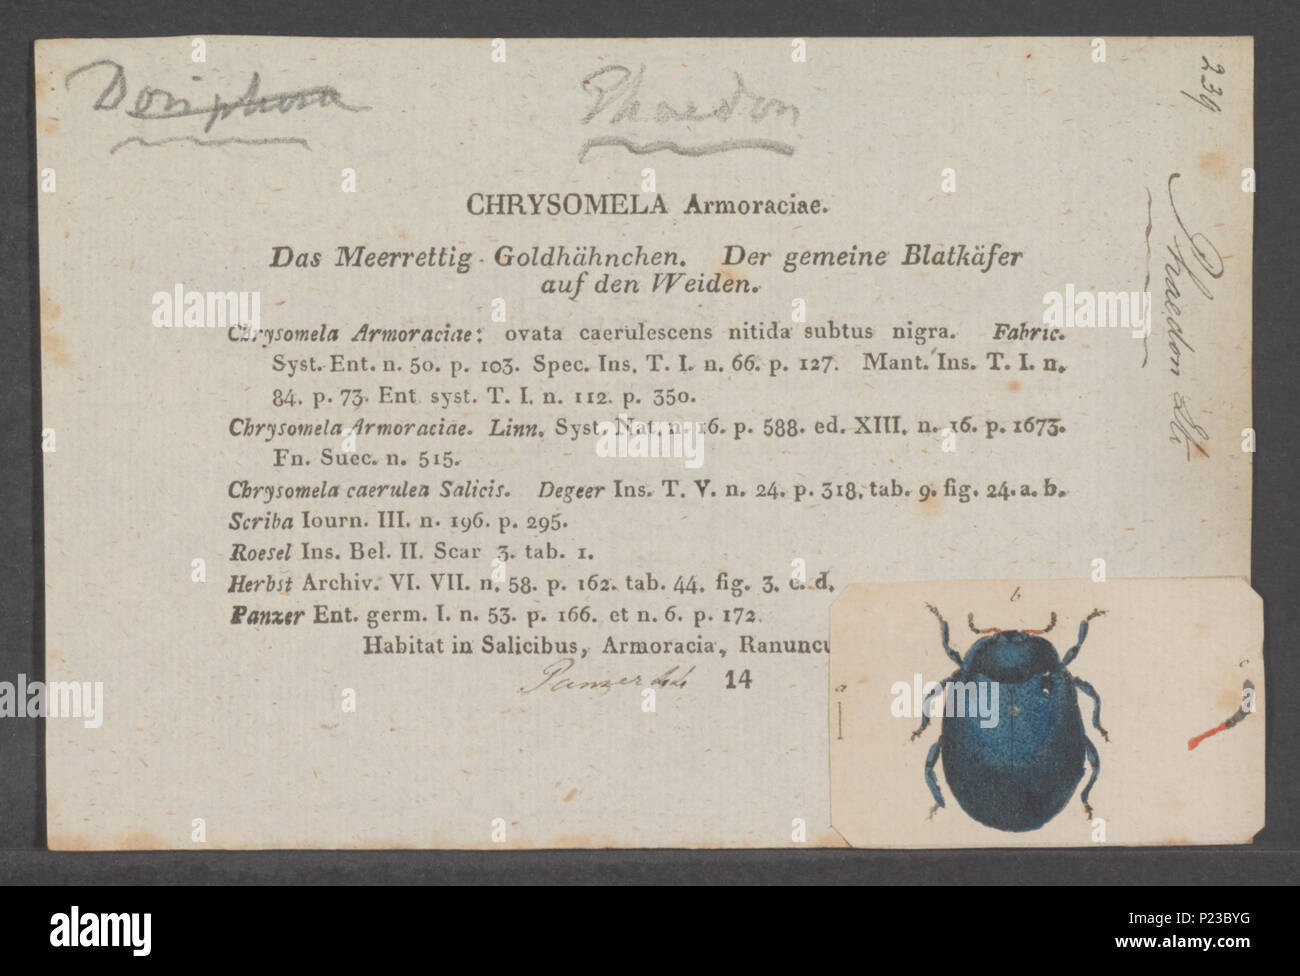 Doriphora
Phaedon
239
CHRYSOMELA Armoraciae.
Das Meerrettig-Goldhähnchen. Der gemeine Blatkäfer
auf den Weiden.
Chrysomela Armoraciae: ovata caerulescens nitida subtus nigra. Fabric.
Syst. Ent. n. 50. p. 103. Spec. Ins. T. I. n. 66. p. 127. Mant. Ins. T. I. n.
84. p. 73. Ent syst. T. I. n. 112. p. 350.
Chrysomela Armoraciae. Linn. Syst. Nat. n. 16. p. 588. ed. XIII. n. 16. p. 1673.
Fn. Suec. n. 515.
Chrysomela caerulea Salicis. Degeer Ins. T. V. n. 24. p. 318. tab. 9. fig. 24. a. b.
Scriba Iourn. III. n. 196. p. 295.
Roesel Ins. Bel. II. Scar 3. tab. 1.
Herbst Archiv. VI. VII. n. 58. p. 162. tab. 44. fig. 3. c. d.
Panzer Ent. germ. I. n. 53. p. 166. et n. 6. p. 172.
Habitat in Salicibus, Armoracia, Ranuncu
Panzer 44 14
Phaedon
a
b
c
alamy
alamy
Image ID: P23BYG
www.alamy.com